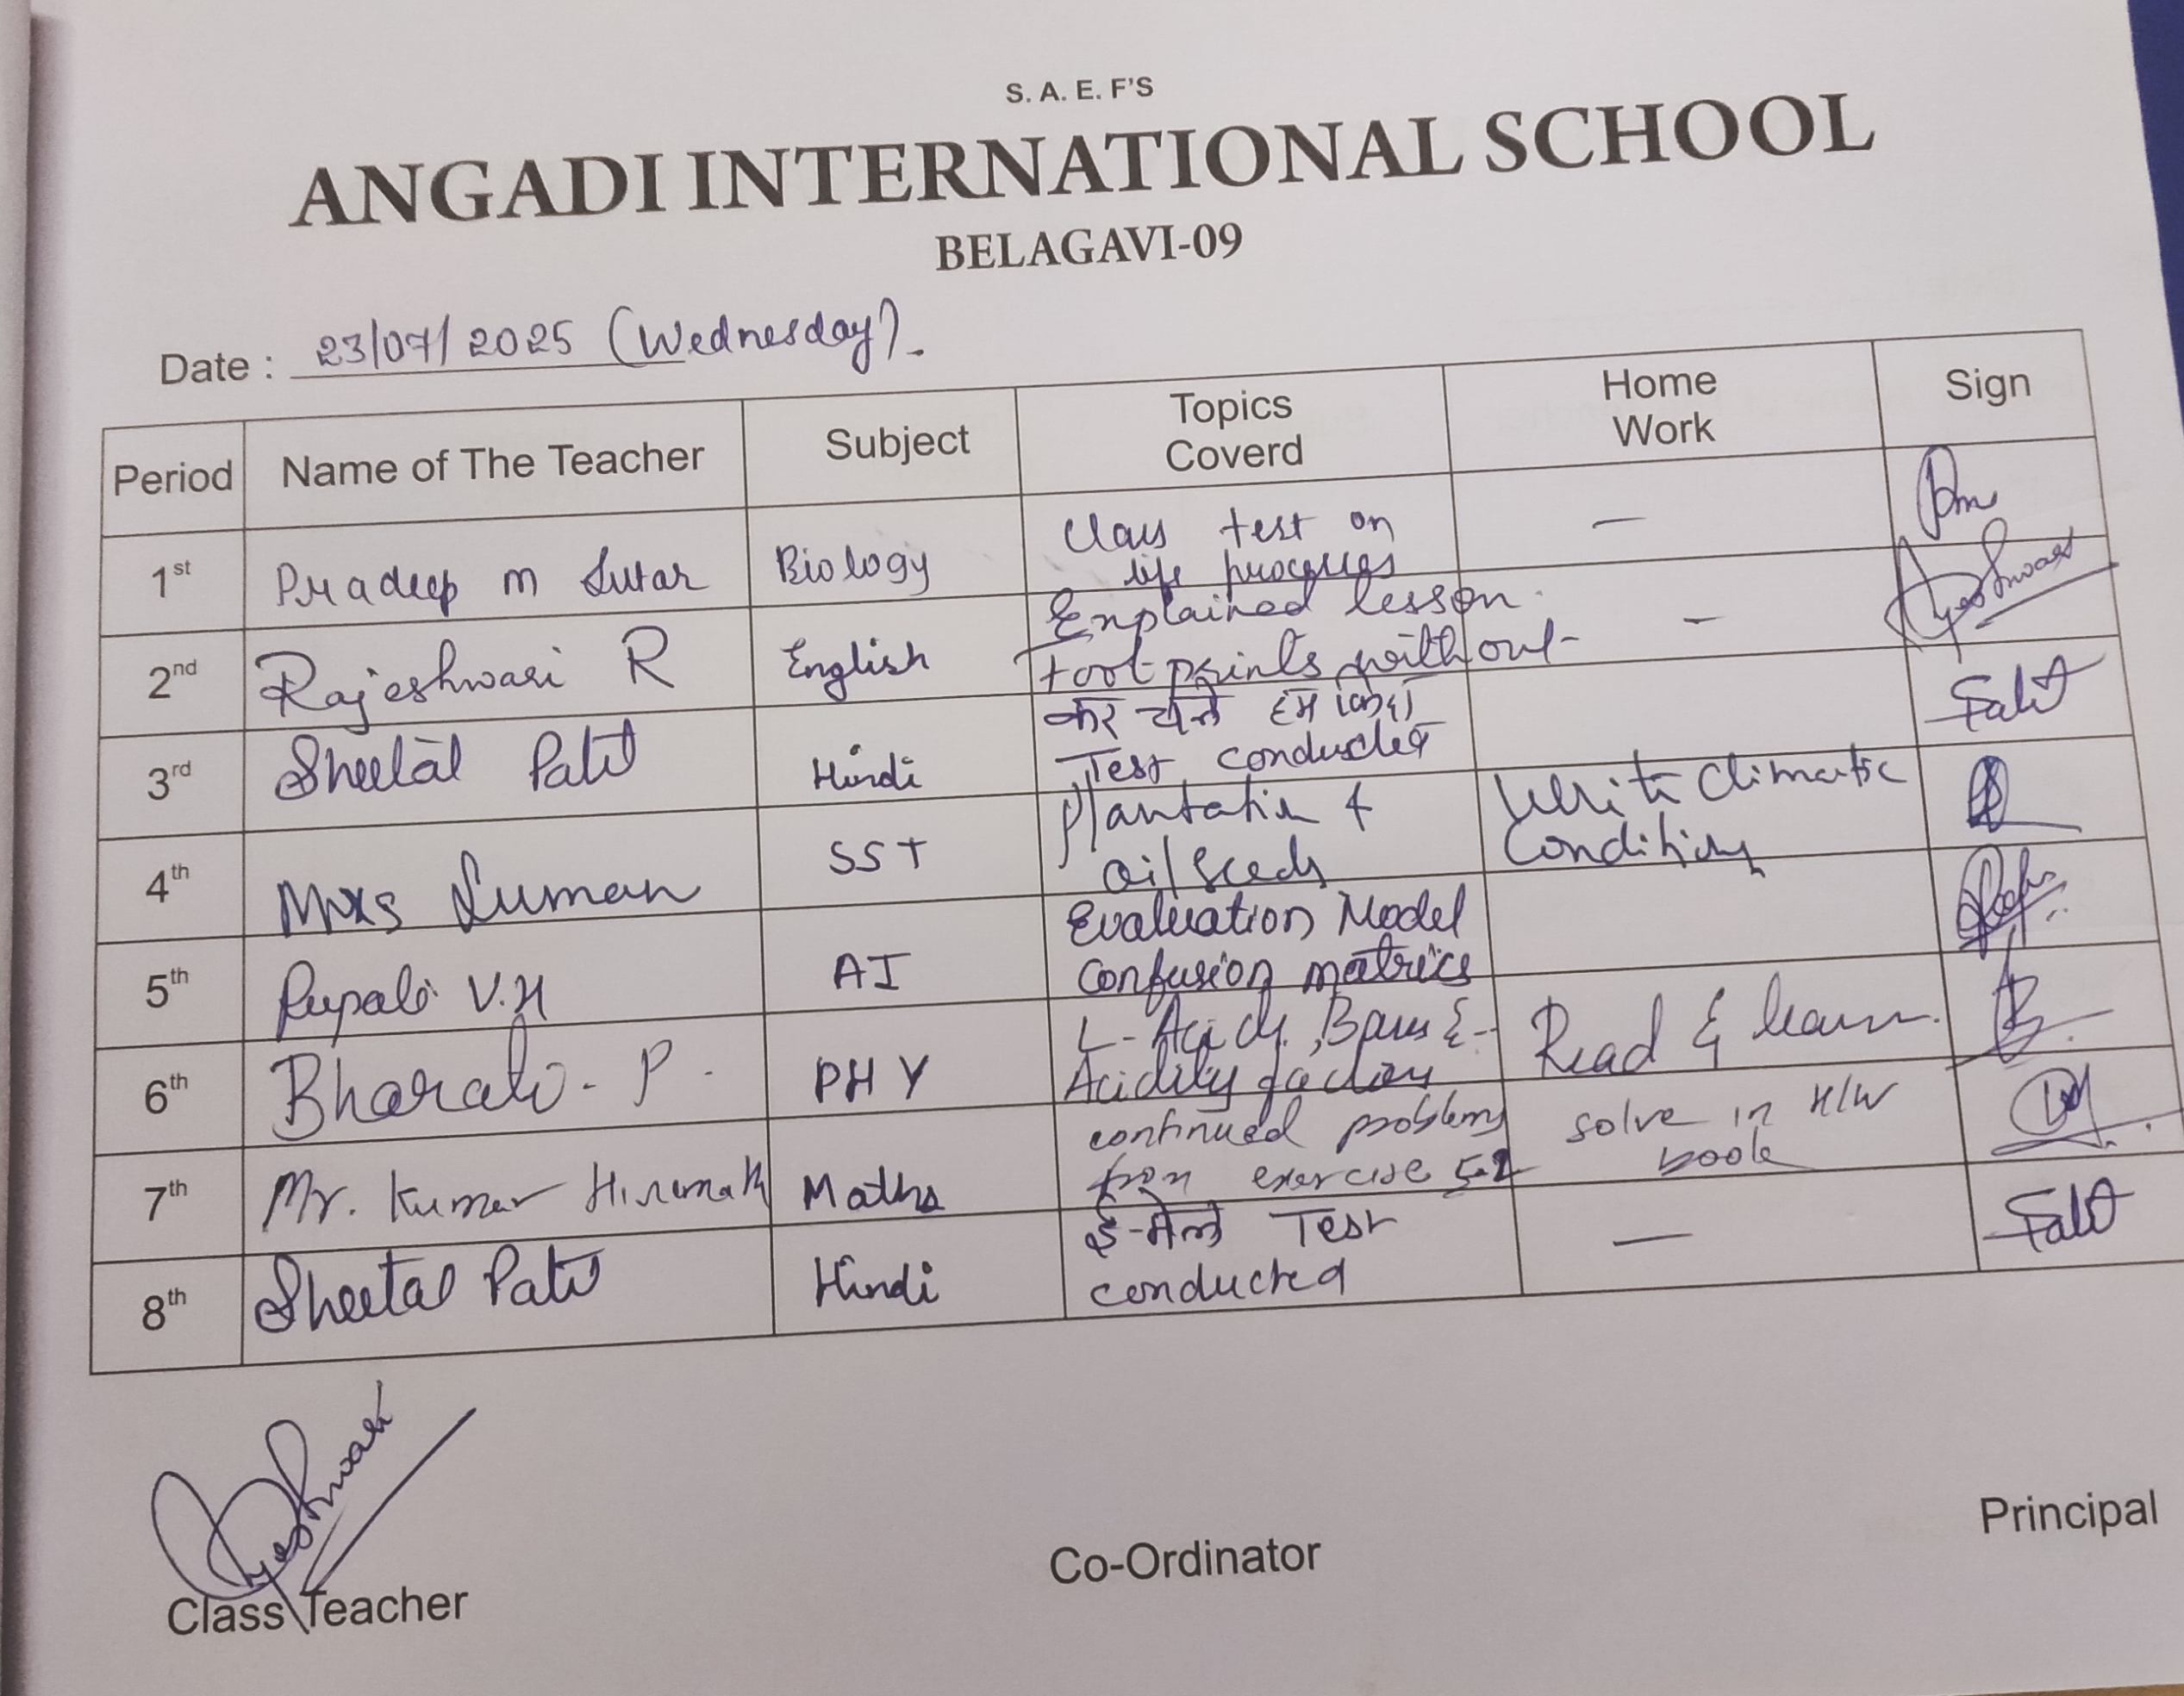 S. A. E. F'S
ANGADI INTERNATIONAL SCHOOL
BELAGAVI-09
Date : 23/07/2025 (Wednesday).
Period Name of The Teacher Subject Topics Coverd Home Work Sign
1st Pradeep m Sutar Biology Class test on life processes —
2nd Rajeshwari R English Explained lesson. Foot prints without - –
3rd Sheetal Patil Hindi कर चले हम फिदा Test conducted
4th Mrs Suman SST Plantation & oil seeds Write Climatic Condition
5th Rupali V.H AI Evaluation Model Confusion matrics
6th Bharati - P. PHY L- Acids, Bases & - Acidity factory Read & learn.
7th Mr. Kumar Hiremath Maths continued problems from exercise 5.2 solve in H/W book
8th Sheetal Patil Hindi Test conducted —
Class Teacher
Co-Ordinator
Principal